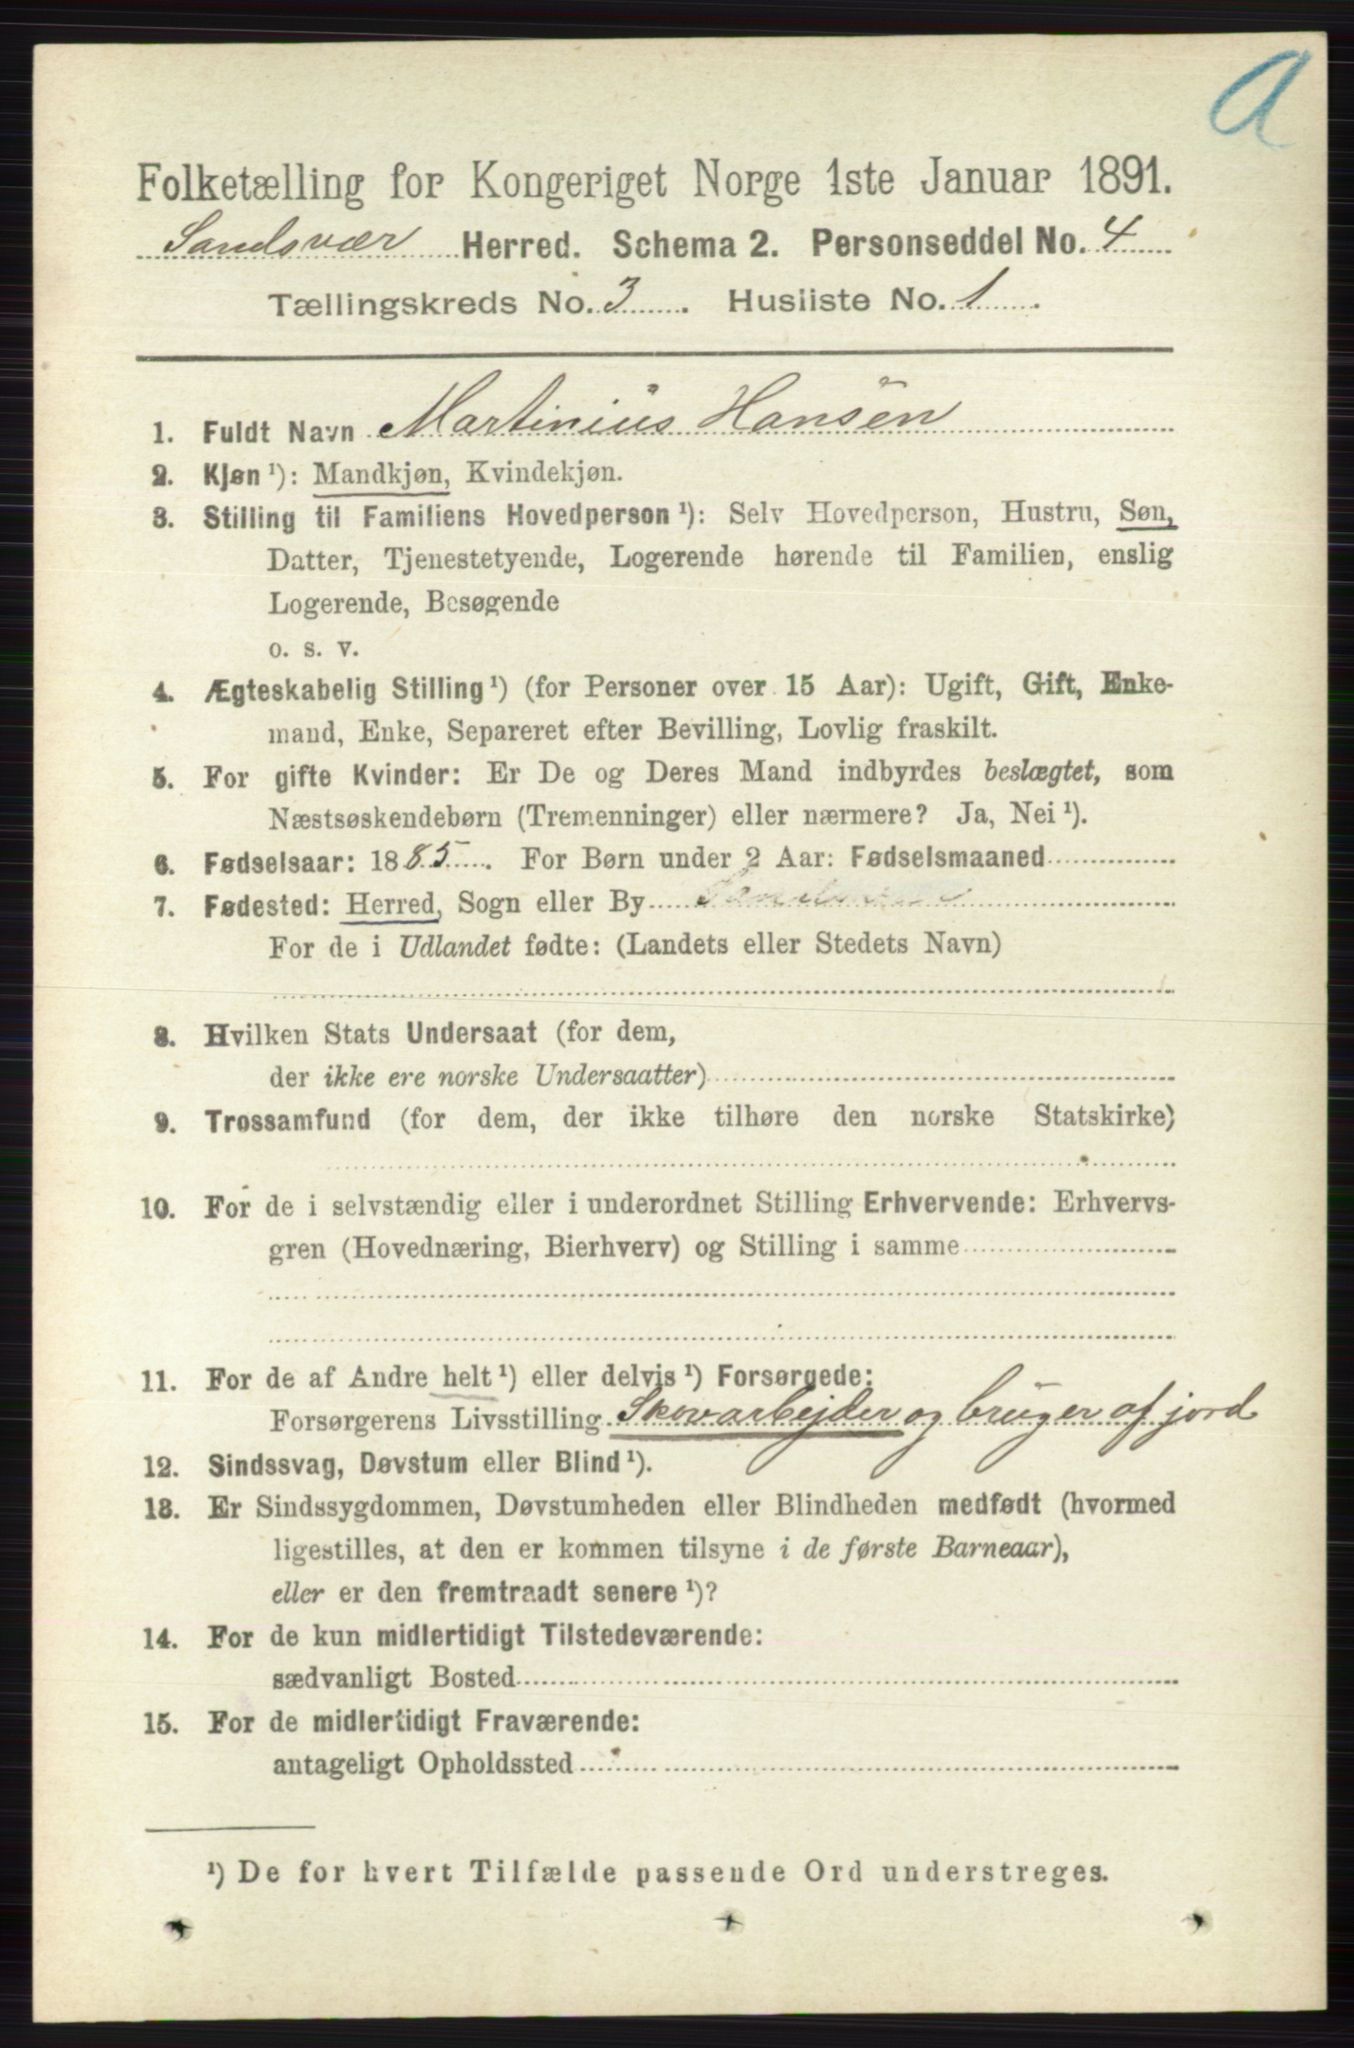 A
Folketælling for Kongeriget Norge 1ste Januar 1891.
Sandsvær Herred. Schema 2. Personseddel No. 4
Tællingskreds No. 3. Husliste No. 1.
1. Fuldt Navn Martinius Hansen
2. Kjøn ¹): Mandkjøn, Kvindekjøn.
3. Stilling til Familiens Hovedperson ¹): Selv Hovedperson, Hustru, Søn,
Datter, Tjenestetyende, Logerende hørende til Familien, enslig
Logerende, Besøgende
o. s. v.
4. Ægteskabelig Stilling ¹) (for Personer over 15 Aar): Ugift, Gift, Enke-
mand, Enke, Separeret efter Bevilling, Lovlig fraskilt.
5. For gifte Kvinder: Er De og Deres Mand indbyrdes beslægtet, som
Næstsøskendebørn (Tremenninger) eller nærmere? Ja, Nei ¹).
6. Fødselsaar: 1885. For Børn under 2 Aar: Fødselsmaaned
7. Fødested: Herred, Sogn eller By
For de i Udlandet fødte: (Landets eller Stedets Navn)
8. Hvilken Stats Undersaat (for dem,
der ikke ere norske Undersaatter)
9. Trossamfund (for dem, der ikke tilhøre den norske Statskirke)
10. For de i selvstændig eller i underordnet Stilling Erhvervende: Erhvervs-
gren (Hovednæring, Bierhverv) og Stilling i samme
11. For de af Andre helt ¹) eller delvis ¹) Forsørgede:
Forsørgerens Livsstilling Skovarbejder og bruger af jord
12. Sindssvag, Døvstum eller Blind ¹).
13. Er Sindssygdommen, Døvstumheden eller Blindheden medfødt (hvormed
ligestilles, at den er kommen tilsyne i de første Barneaar),
eller er den fremtraadt senere ¹)?
14. For de kun midlertidigt Tilstedeværende:
sædvanligt Bosted
15. For de midlertidigt Fraværende:
antageligt Opholdssted
¹) De for hvert Tilfælde passende Ord understreges.